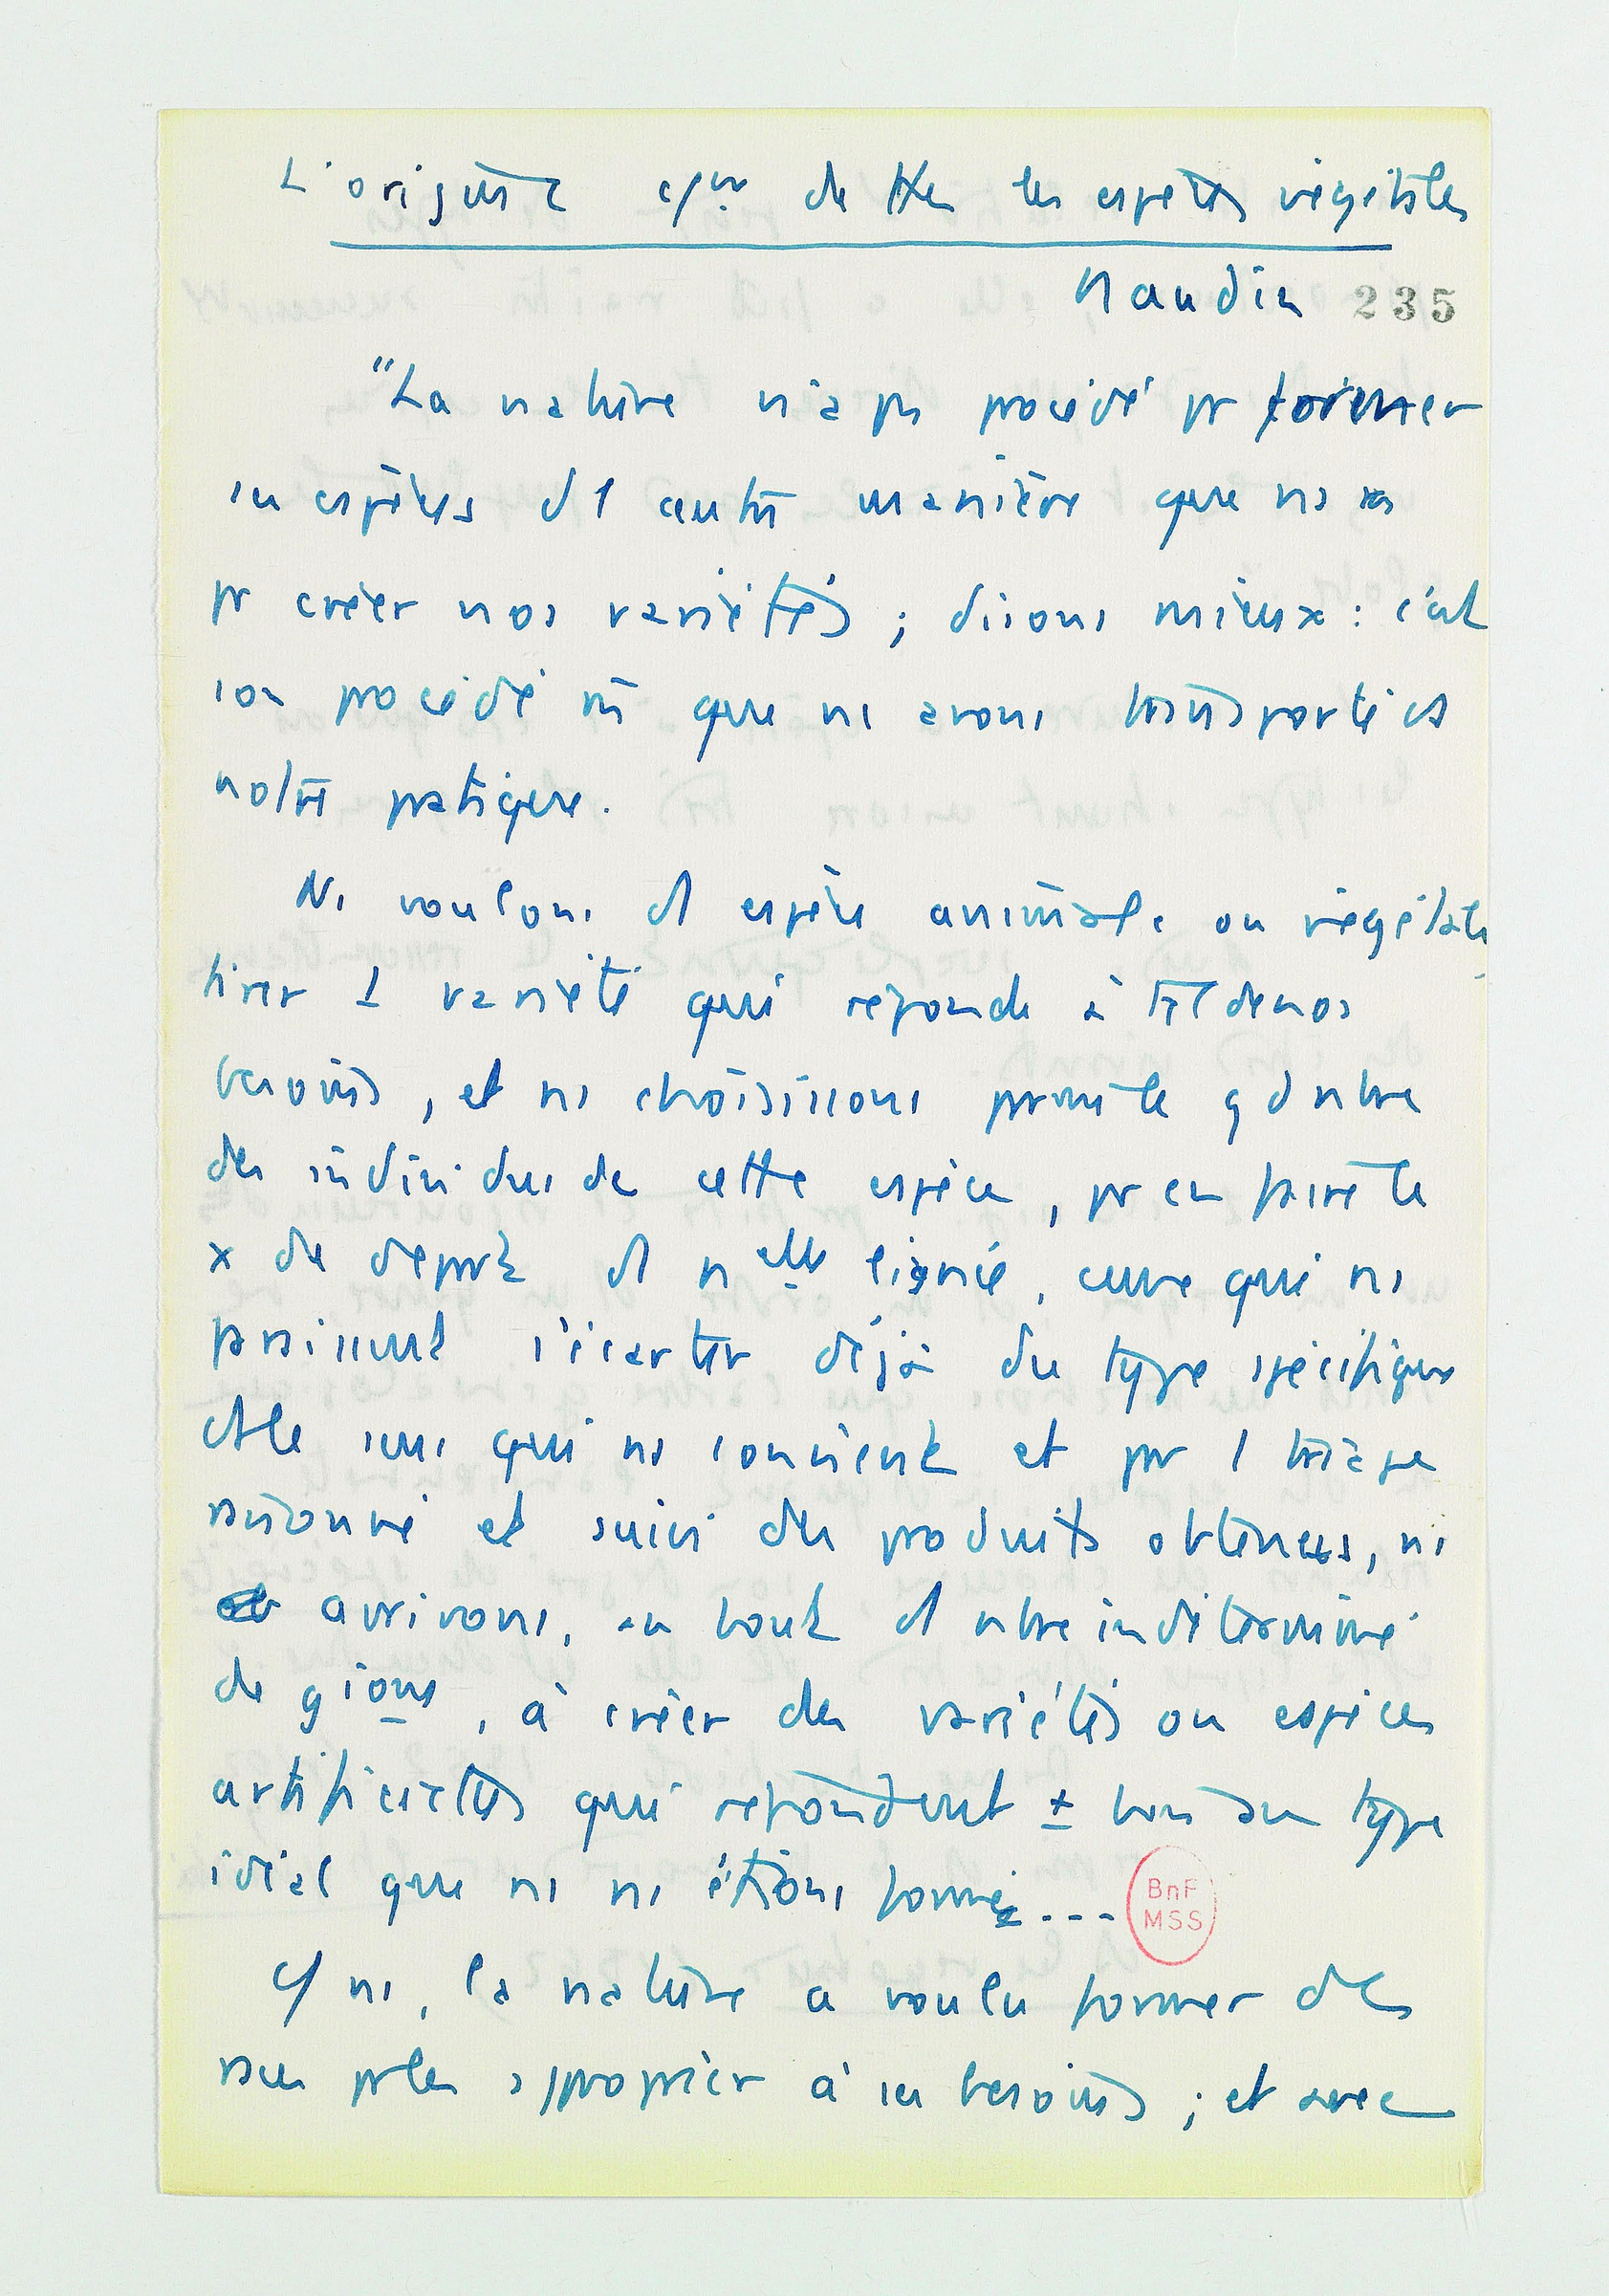 L'origine c/ne de ttes les espèces végétales
Naudin 235
"La nature n'a pas procédé pr former
ses espèces d'1 autre manière que ns
pr créer nos variétés ; disons mieux : c'est
son procédé m que ns avons transporté ds
notre pratique.
Ns voulons d'1 espèce animale ou végétale
tirer 1 variété qui réponde à tel de nos
besoins, et ns choisissons parmi le gd nbre
des individus de cette espèce, pr en faire le
x de départ d'1 nelle lignée, ceux qui ns
paraissent s'écarter déjà du type spécifique
ds le sens qui ns convient et par 1 triage
raisonné et suivi des produits obtenus, ns
arrivons, au bout d'1 nbre indéterminé
de gions, à créer des variétés ou espèces
artificielles qui répondent ± bien au type
idéal que ns ns étions formé...
BnF
MSS
C/ ns, la nature a voulu former des
races pr les approprier à ses besoins ; et avec